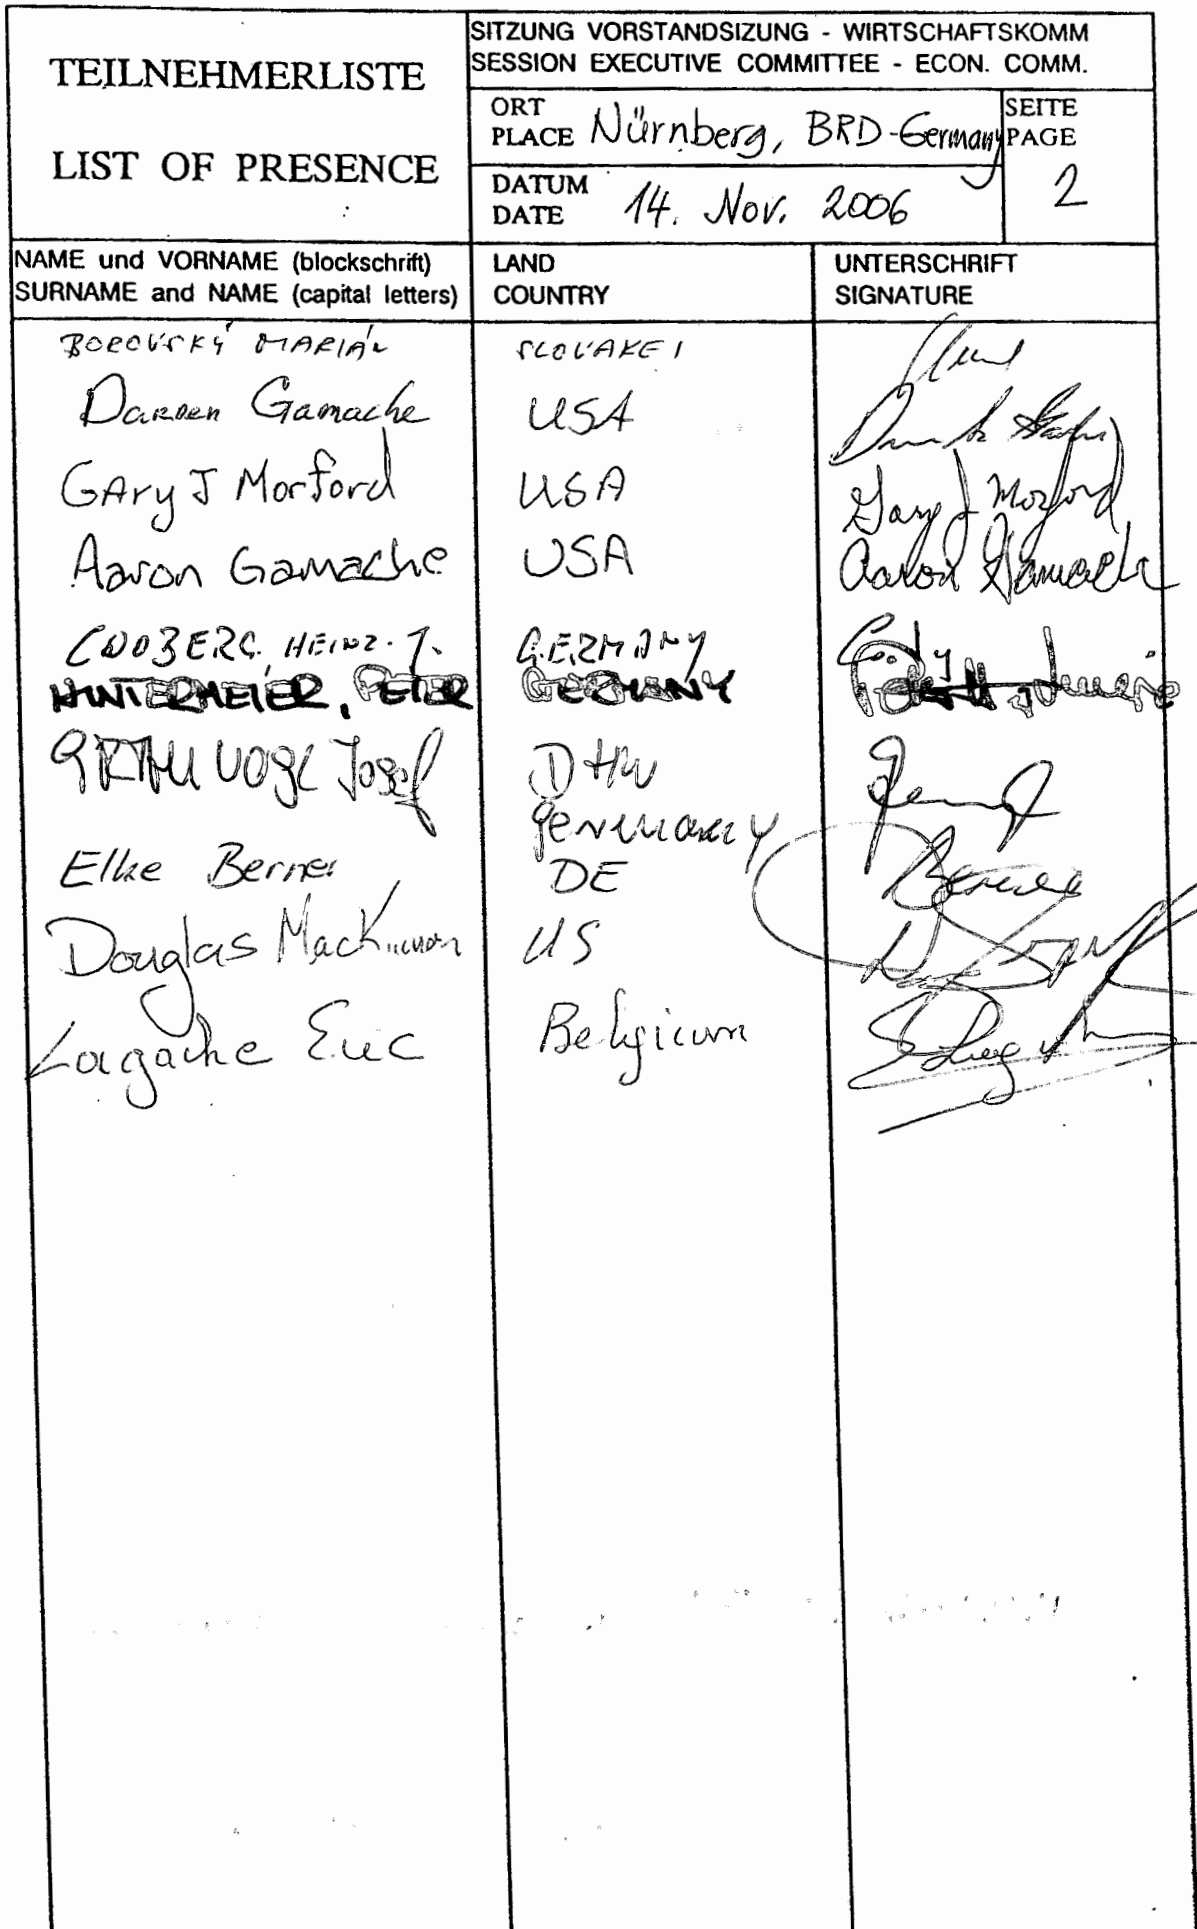 TEILNEHMERLISTE
LIST OF PRESENCE
SITZUNG VORSTANDSIZUNG - WIRTSCHAFTSKOMM
SESSION EXECUTIVE COMMITTEE - ECON. COMM.
ORT
PLACE Nürnberg, BRD-Germany
SEITE
PAGE
2
DATUM
DATE 14. Nov. 2006
NAME und VORNAME (blockschrift)
SURNAME and NAME (capital letters)
LAND
COUNTRY
UNTERSCHRIFT
SIGNATURE
BOROVSKÝ MARIÁN SLOVAKEI
Darren Gamache USA
GAry J Morford USA Gary J Morford
Aaron Gamache USA Aaron Gamache
HEINZ-J. GERMANY
HINTERMEIER, PETER GERMANY
Josef
Germany
Elke Berner DE
Douglas MacKinnon US
Lagache Eric Belgium